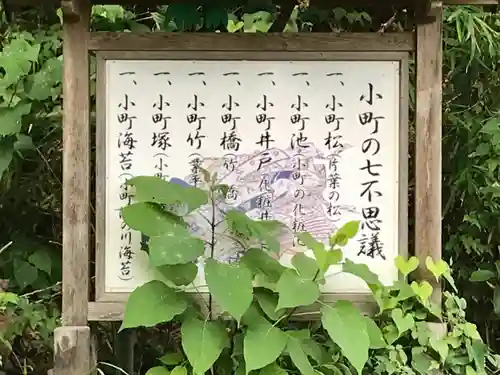 小町の七不思議
一、小町松(片葉の松
一、小町池(小町の化粧池
一、小町井戸(化粧井
一、小町橋(竹橋
一、小町竹(
一、小町塚(
一、小町海苔(小町の川海苔)